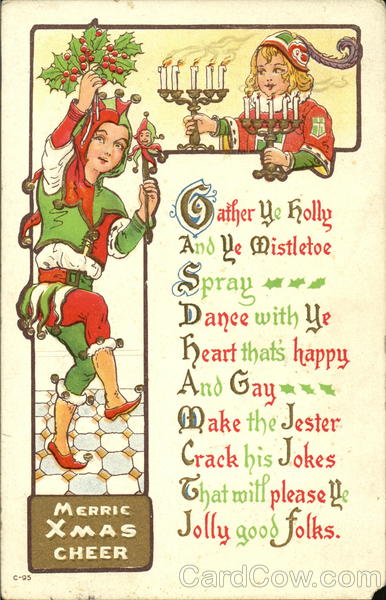 Gather Ye Holly
And Ye Mistletoe
Spray
Dance with Ye
Heart that's happy
And Gay
Make the Jester
Crack his Jokes
That will please Ye
Jolly good folks.
MERRIE
XMAS
CHEER
C-95
CardCow.com